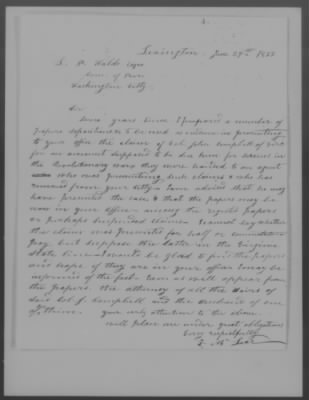 Lexington June 29th 1855
L. P. Waldo Esqr
Com. of Pens
Washington City
Sir
Some years since I prepared a number of
papers depositions to be used as evidence in presenting
to your office the claim of Col John Campbell of
for an amount supposed to be due him for services in
the Revolutionary war they were handed to an agent
who was presenting such claims & who has
removed from your city & I am advised that he may
have presented the case & that the papers may be
now in your office among the rejected papers
or perhaps suspended claims I cannot say whether
the claim was presented for half or commutation
pay but suppose the latter in the Virginia
State line would be glad to find the papers
and hope if they are in your office I may be
informed of the fact I am as will appear from
the papers the attorney of all the heirs of
said Col J. Campbell and the husband of one
of them. your early attention to the above
will place me under great obligations
Very respectfully